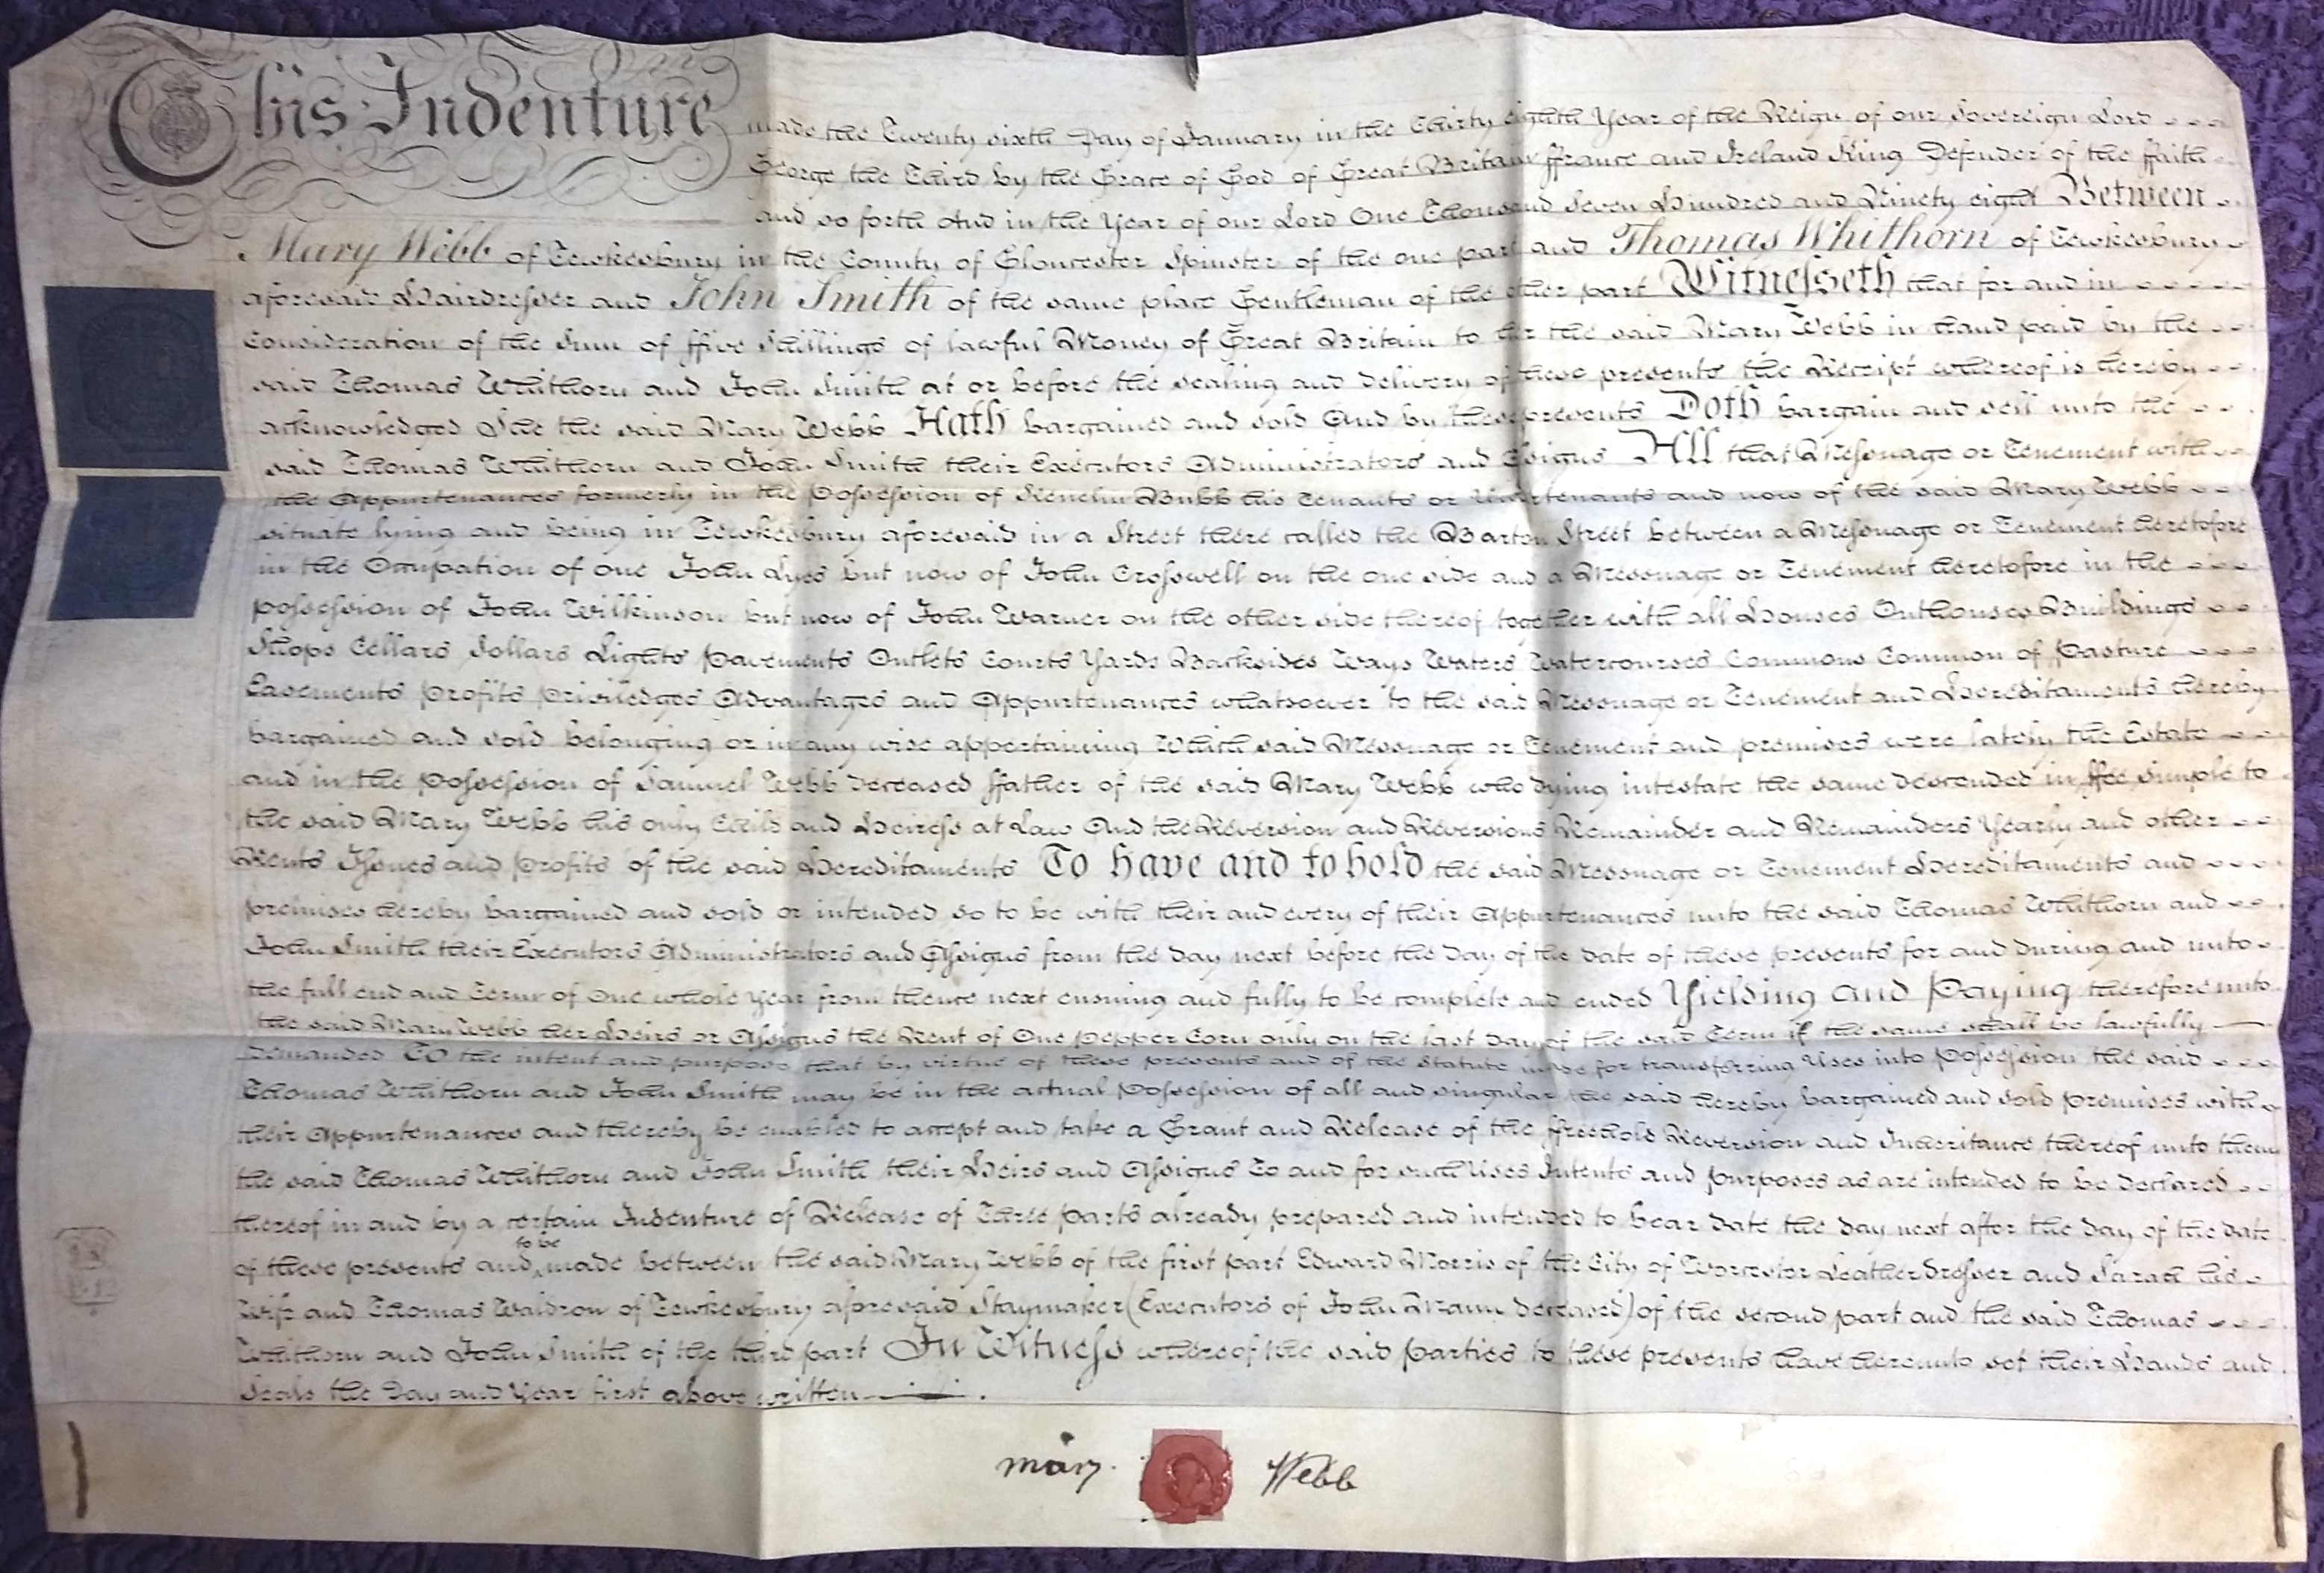 This Indenture
made the Twenty sixth Day of January in the Thirty eighth Year of the Reign of our Sovereign Lord
George the Third by the Grace of God of Great Britain ffrance and Ireland King Defender of the ffaith
and so forth And in the Year of our Lord One Thousand Seven Hundred and Ninety eight Between
Mary Webb of Tewkesbury in the County of Gloucester Spinster of the one part and Thomas Whithorn of Tewkesbury
aforesaid Hairdresser and John Smith of the same place Gentleman of the other part Witnesseth that for and in
Consideration of the Sum of ffive Shillings of lawful Money of Great Britain to her the said Mary Webb in hand paid by the
said Thomas Whithorn and John Smith at or before the sealing and delivery of these presents the Receipt whereof is hereby
acknowledged She the said Mary Webb Hath bargained and sold And by these presents Doth bargain and sell unto the
said Thomas Whithorn and John Smith their Executors Administrators and Assigns All that Messuage or Tenement with
the Appurtenances formerly in the Possession of Kenelm Bubb his Tenants or Undertenants and now of the said Mary Webb
situate lying and being in Tewkesbury aforesaid in a Street there called the Barton Street between a Messuage or Tenement heretofore
in the Occupation of one John Lyes but now of John Crosswell on the one side and a Messuage or Tenement heretofore in the
possession of John Wilkinson but now of John Warner on the other side thereof together with all Houses Outhouses Buildings
Shops Cellars Sollars Lights Pavements Outlets Courts Yards Backsides Ways Waters Watercourses Commons Common of Pasture
Easements Profits Priviledges Advantages and Appurtenances whatsoever to the said Messuage or Tenement and Hereditaments hereby
bargained and sold belonging or in any wise appertaining Which said Messuage or Tenement and premises were lately the Estate
and in the Possession of Samuel Webb deceased ffather of the said Mary Webb who dying intestate the same descended in ffee simple to
the said Mary Webb his only Child and Heiress at Law And the Reversion and Reversions Remainder and Remainders Yearly and other
Rents Issues and Profits of the said Hereditaments To have and to hold the said Messuage or Tenement Hereditaments and
premises hereby bargained and sold or intended so to be with their and every of their Appurtenances unto the said Thomas Whithorn and
John Smith their Executors Administrators and Assigns from the day next before the day of the date of these presents for and during and unto
the full end and Term of One whole Year from thence next ensuing and fully to be complete and ended Yielding and Paying therefore unto
the said Mary Webb her Heirs or Assigns the Rent of One Pepper Corn only on the last day of the said Term if the same shall be lawfully
demanded To the intent and purpose that by virtue of these presents and of the Statute made for transferring Uses into Possession the said
Thomas Whithorn and John Smith may be in the actual Possession of all and singular the said hereby bargained and sold premises with
their Appurtenances and thereby be enabled to accept and take a Grant and Release of the ffreehold Reversion and Inheritance thereof unto them
the said Thomas Whithorn and John Smith their Heirs and Assigns To and for such Uses Intents and purposes as are intended to be declared
thereof in and by a certain Indenture of Release of Three Parts already prepared and intended to bear date the day next after the day of the date
of these presents and to be made between the said Mary Webb of the first part Edward Morris of the City of Worcester Leatherdresser and Sarah his
Wife and Thomas Waldron of Tewkesbury aforesaid Staymaker (Executors of John Mann deceased) of the second part and the said Thomas
Whithorn and John Smith of the third part In Witness whereof the said parties to these presents have hereunto set their Hands and
Seals the Day and Year first above written
Mary Webb